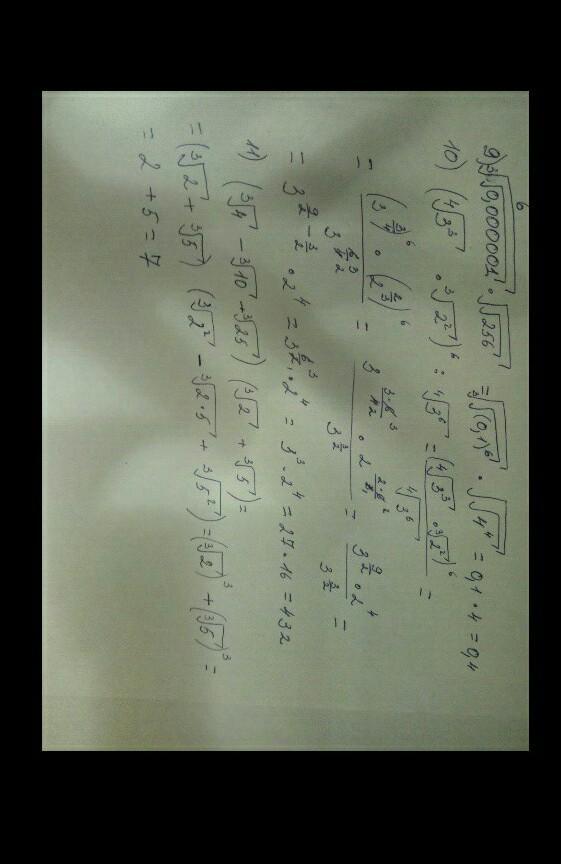 9) ³√√0,000001 · √√256 = ³√√(0,1)⁶ · √√4⁴ = 0,1 · 4 = 0,4
10) (⁴√3³ · ³√2²)⁶ : ⁴√3⁶ = (⁴√3³ · ³√2²)⁶ / ⁴√3⁶ =
= (3^(3/4))⁶ · (2^(2/3))⁶ / 3^(6/4) = 3^(3·6/4) · 2^(2·6/3) / 3^(3/2) = 3^(9/2) · 2⁴ / 3^(3/2) =
= 3^(9/2 - 3/2) · 2⁴ = 3^(6/2) · 2⁴ = 3³ · 2⁴ = 27 · 16 = 432
11) (³√4 - ³√10 + ³√25) (³√2 + ³√5) =
= (³√2 + ³√5) (³√2² - ³√2·5 + ³√5²) = (³√2)³ + (³√5)³ =
= 2 + 5 = 7